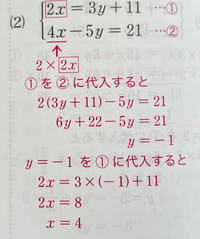 (2) {2x = 3y + 11 …①
4x − 5y = 21 …②
2 × 2x
①を②に代入すると
2(3y + 11) − 5y = 21
6y + 22 − 5y = 21
y = −1
y = −1 を①に代入すると
2x = 3 × (−1) + 11
2x = 8
x = 4